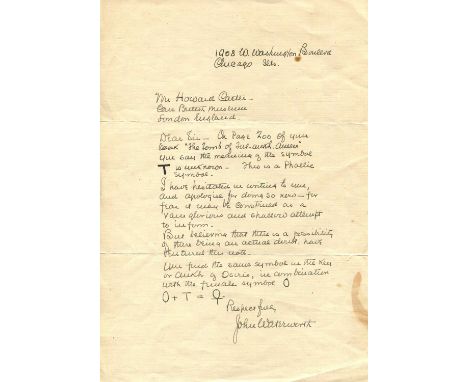 1908 W. Washington Boulevard
Chicago Ills.
Mr Howard Carter -
Care British Museum
London England
Dear Sir - On Page 200 of your
book "The Tomb of Tut-ankh-Amen"
you say the meaning of the symbol
T is unknown - This is a Phallic
symbol.
I have hesitated in writing to you,
and apologize for doing so now - for
fear it may be construed as a
vain glorious and shallow attempt
to inform.
But believing that there is a possibility
of there being an actual doubt, have
ventured this note.
You find the same symbol in the Key
or Ankh of Osiris, in combination
with the female symbol O
O + T = ♀
Respectfully
John Waterworth